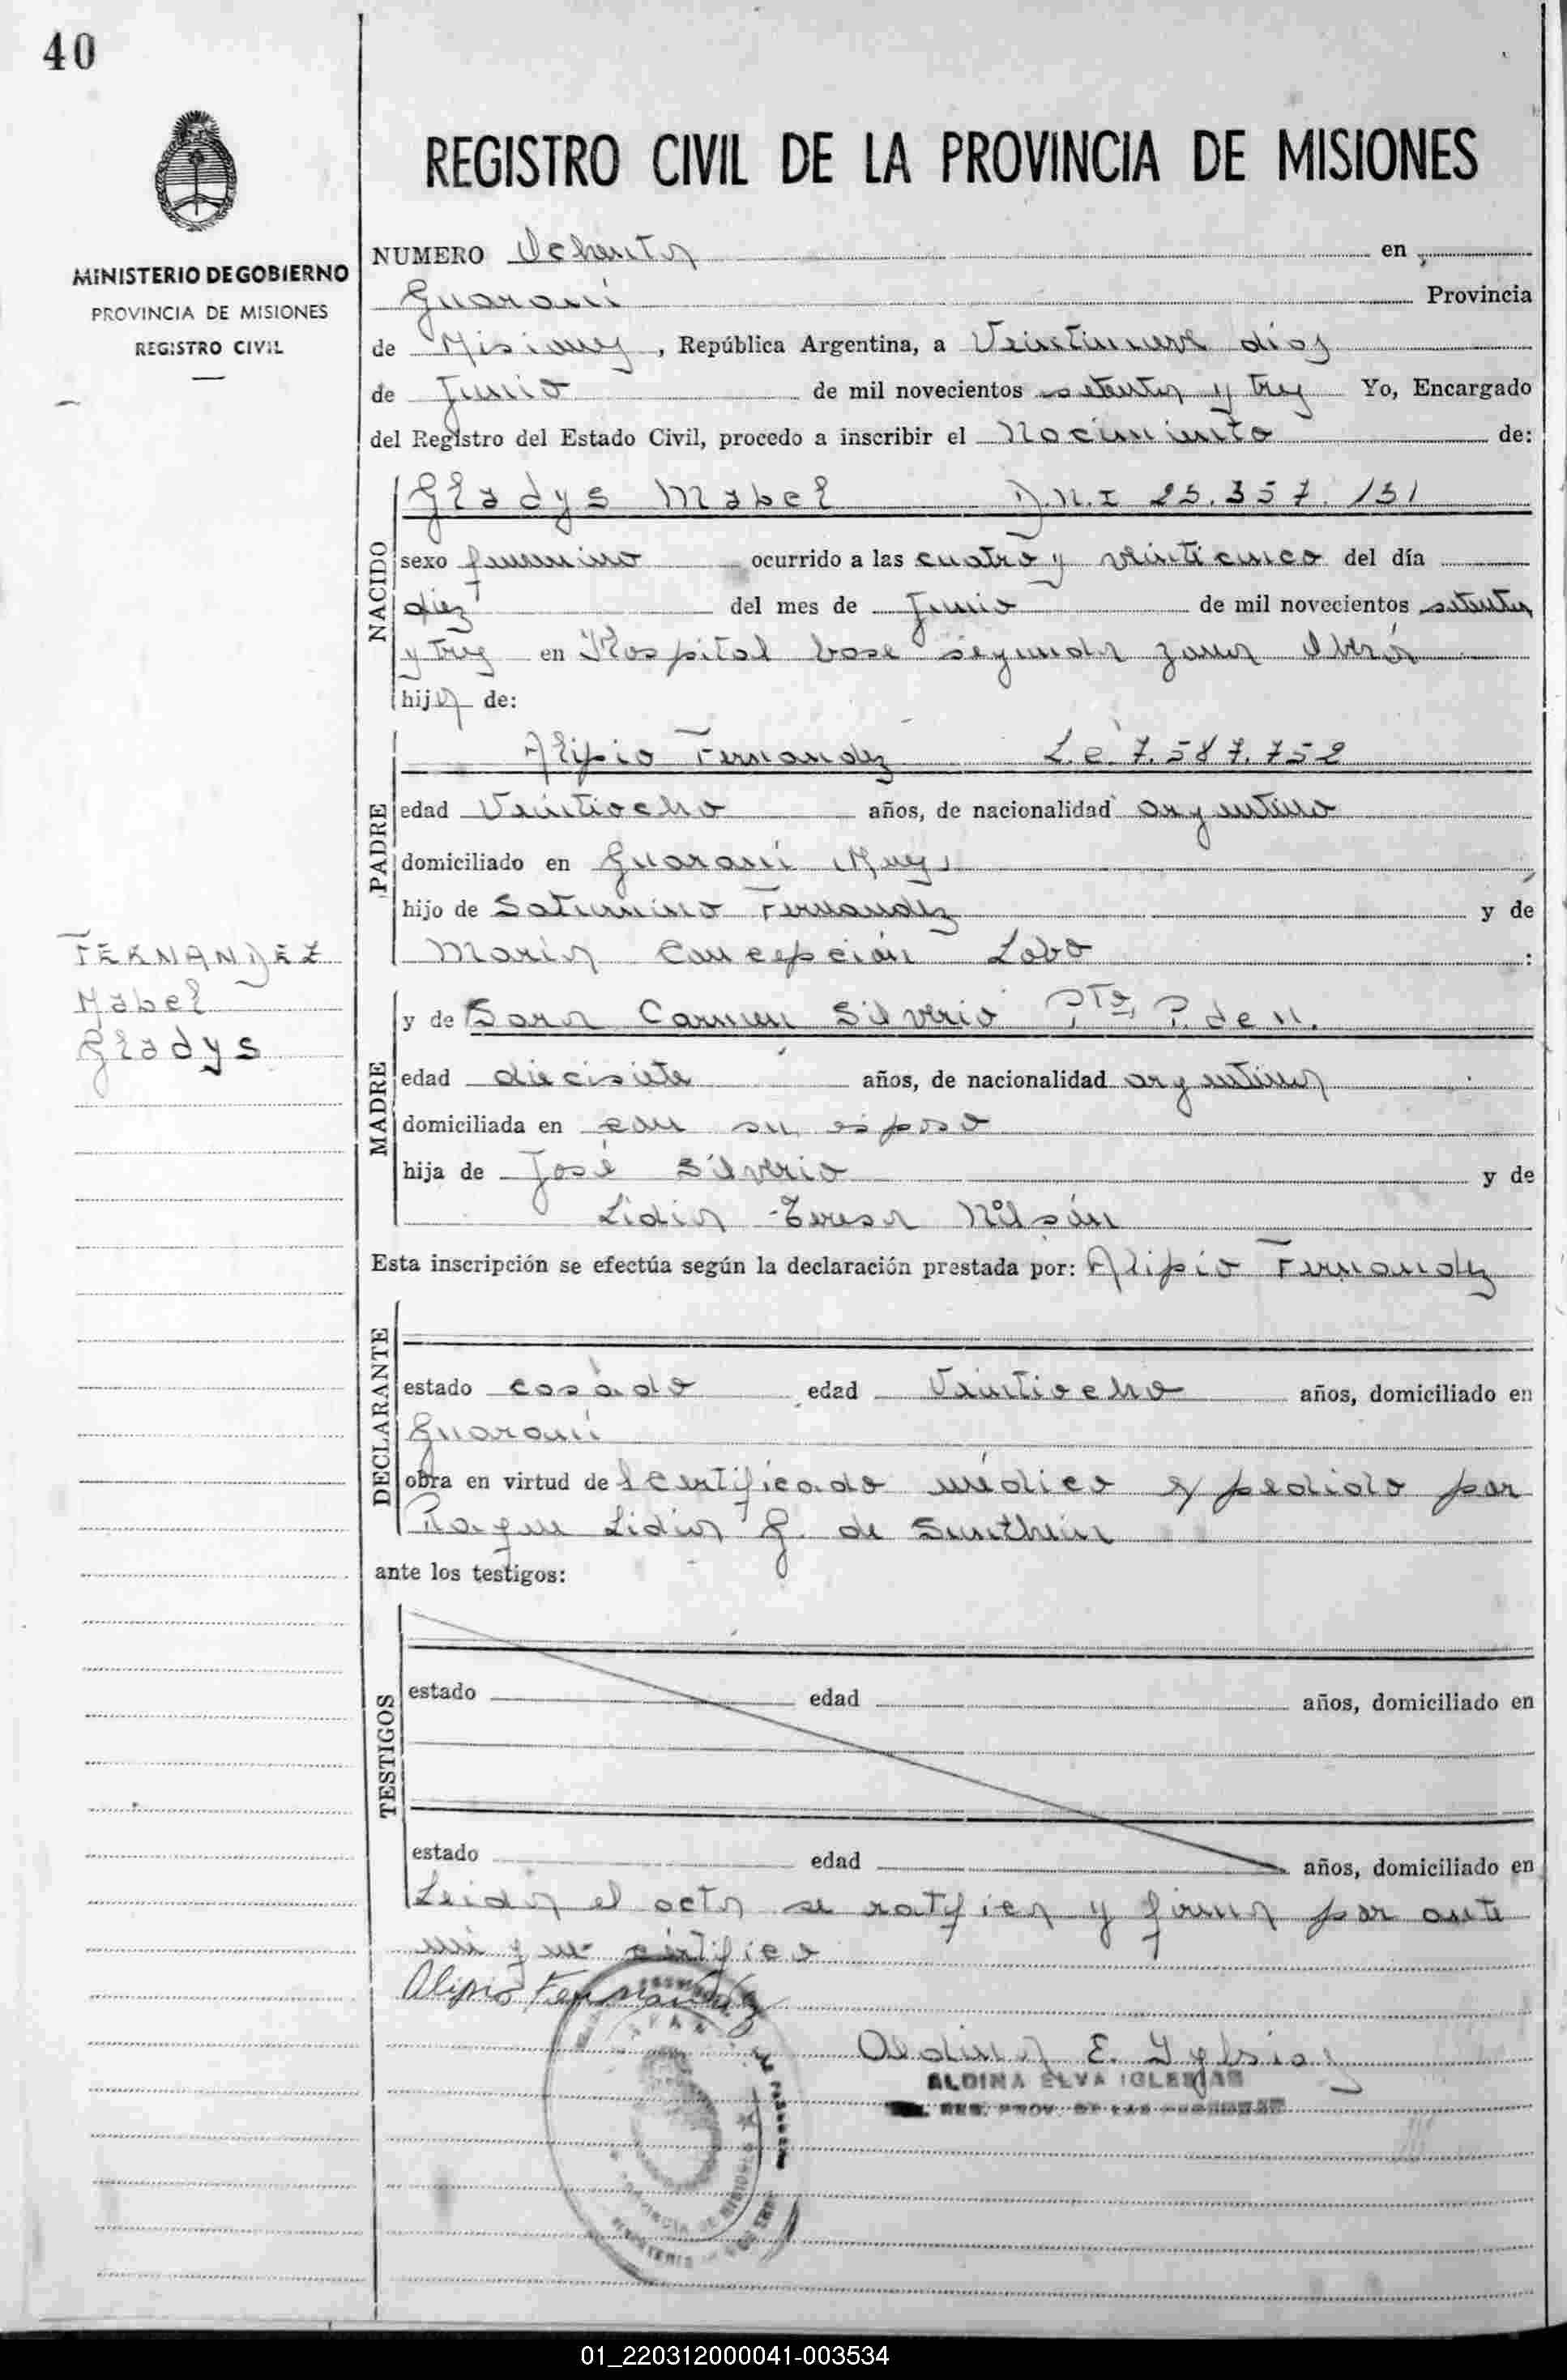 40
REGISTRO CIVIL DE LA PROVINCIA DE MISIONES
MINISTERIO DE GOBIERNO
PROVINCIA DE MISIONES
REGISTRO CIVIL
NUMERO Ochenta en
Guaraní Provincia
de Misiones, República Argentina, a Veintinueve días
de Junio de mil novecientos setenta y tres Yo, Encargado
del Registro del Estado Civil, procedo a inscribir el Nacimiento de:
NACIDO
Gladys Mabel D.N.I 23.357.131
sexo femenino ocurrido a las cuatro y veinticinco del día
diez del mes de Junio de mil novecientos setenta
y tres en Hospital base segunda zona Oberá
hija de:
PADRE
Alipio Fernandez L.e. 7.587.752
edad Veintiocho años, de nacionalidad argentino
domiciliado en Guaraní
hijo de Saturnino Fernandez y de
María Concepción Lobo :
FERNANDEZ
Mabel
Gladys
MADRE
y de Sara Carmen Silverio P. de N.
edad diecisiete años, de nacionalidad argentina
domiciliada en con su esposo
hija de José Silverio y de
Lidia Teresa Nilsón
Esta inscripción se efectúa según la declaración prestada por: Alipio Fernandez
DECLARANTE
estado casado edad Veintiocho años, domiciliado en
Guaraní
obra en virtud del certificado médico expedido por
Lidia G. de
ante los testigos:
TESTIGOS
estado edad años, domiciliado en
estado edad años, domiciliado en
Leida el acta se ratifica y firma por ante
mi que certifico
Alipio Fernandez
Aldina E. Yglesias
ALDINA ELVA IGLESIAS
REG. PROV. DE LAS PERSONAS
PROVINCIA DE MISIONES
01_220312000041-003534